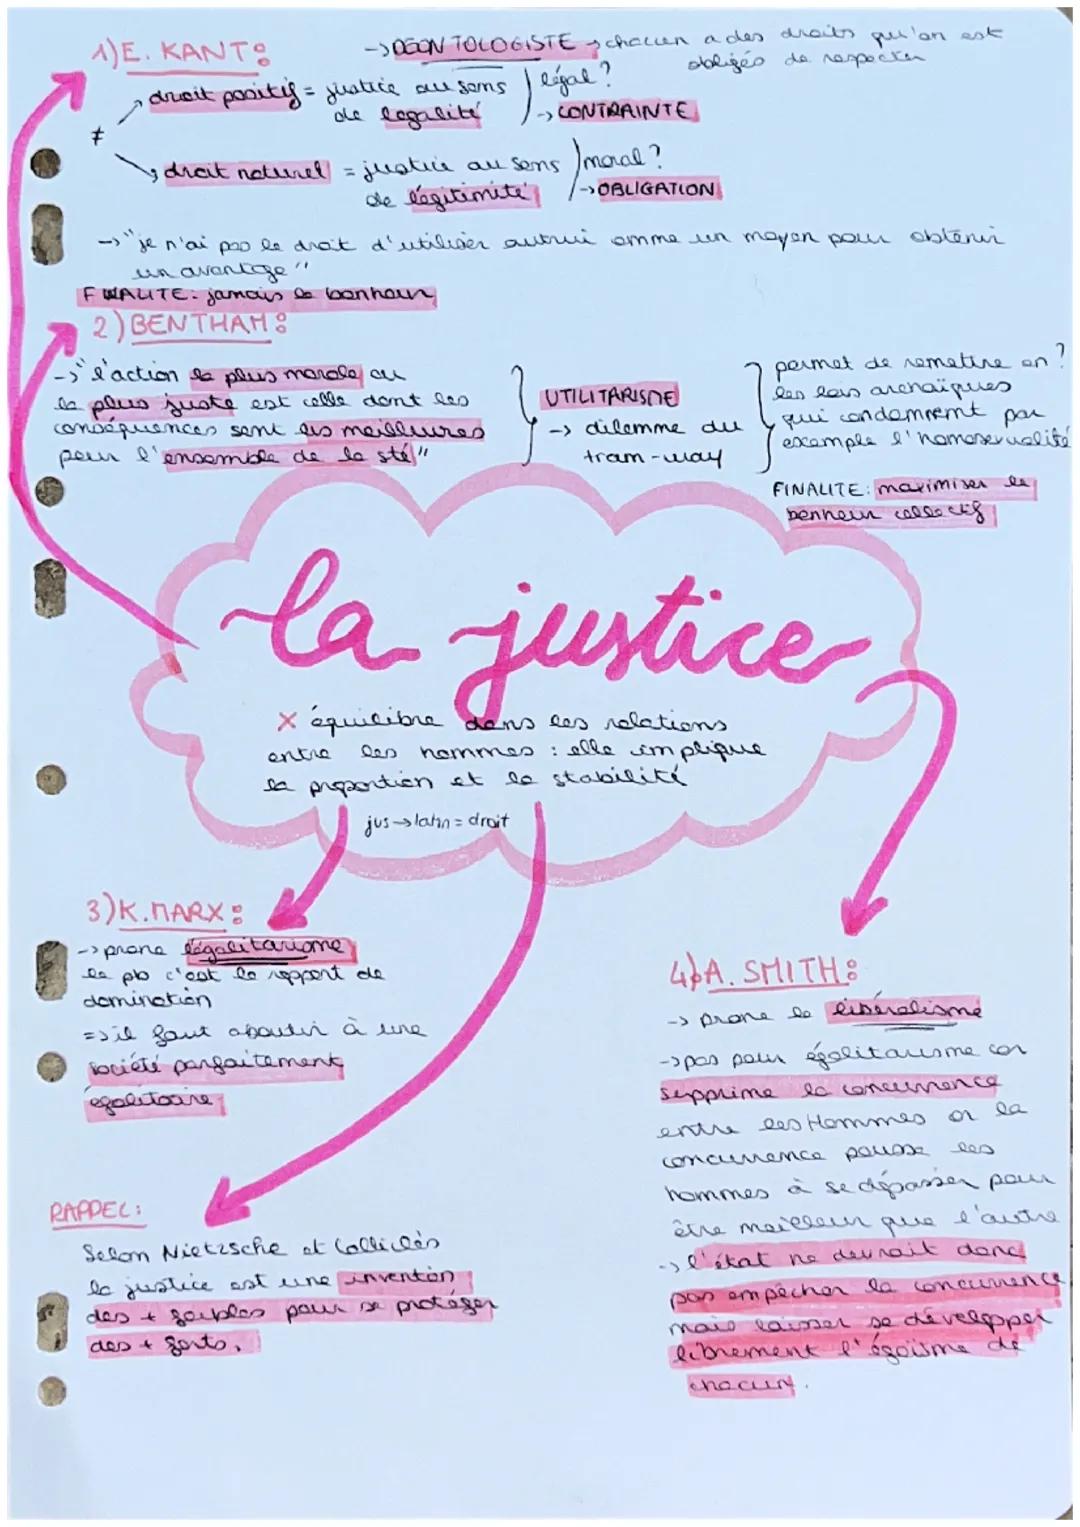 1) E. KANT:
-> DEONTOLOGISTE -> chacun a des droits qu'on est
obligés de respecter
≠
droit positif = justice au sens
de légalité
légal ?
-> CONTRAINTE
droit naturel = justice au sens
de légitimité
moral ?
-> OBLIGATION
-> "je n'ai pas le droit d'utiliser autrui comme un moyen pour obtenir
un avantage"
FINALITE: jamais le bonheur
2) BENTHAM:
-> "l'action la plus morale ou
la plus juste est celle dont les
conséquences sont les meilleures
pour l'ensemble de la sté"
UTILITARISME
-> dilemme du
tram-way
permet de remettre en ?
les lois archaïques
qui condamnent par
exemple l'homosexualité
FINALITE: maximiser le
bonheur collectif
la justice
× équilibre dans les relations
entre les hommes : elle implique
la proportion et la stabilité
jus -> latin = droit
3) K. MARX:
-> prone l'égalitarisme
le pb c'est le rapport de
domination
=> il faut aboutir à une
société parfaitement
égalitaire
4) A. SMITH:
-> prone le libéralisme
-> pas pour égalitarisme car
supprime la concurrence
entre les Hommes or la
concurrence pousse les
hommes à se dépasser pour
être meilleur que l'autre
-> l'état ne devrait donc
pas empêcher la concurrence
mais laisser se développer
librement l'égoïsme de
chacun.
RAPPEL:
Selon Nietzsche et Calliclès
la justice est une invention
des + faibles pour se protéger
des + forts.